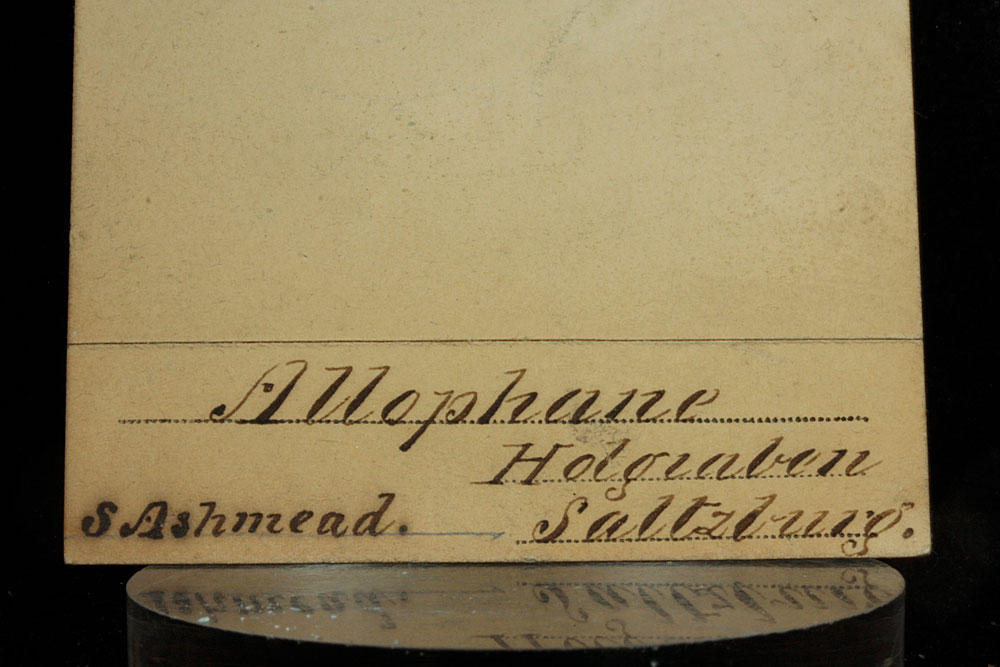 Allophane
Holgraben
S Ashmead.
Saltzburg.